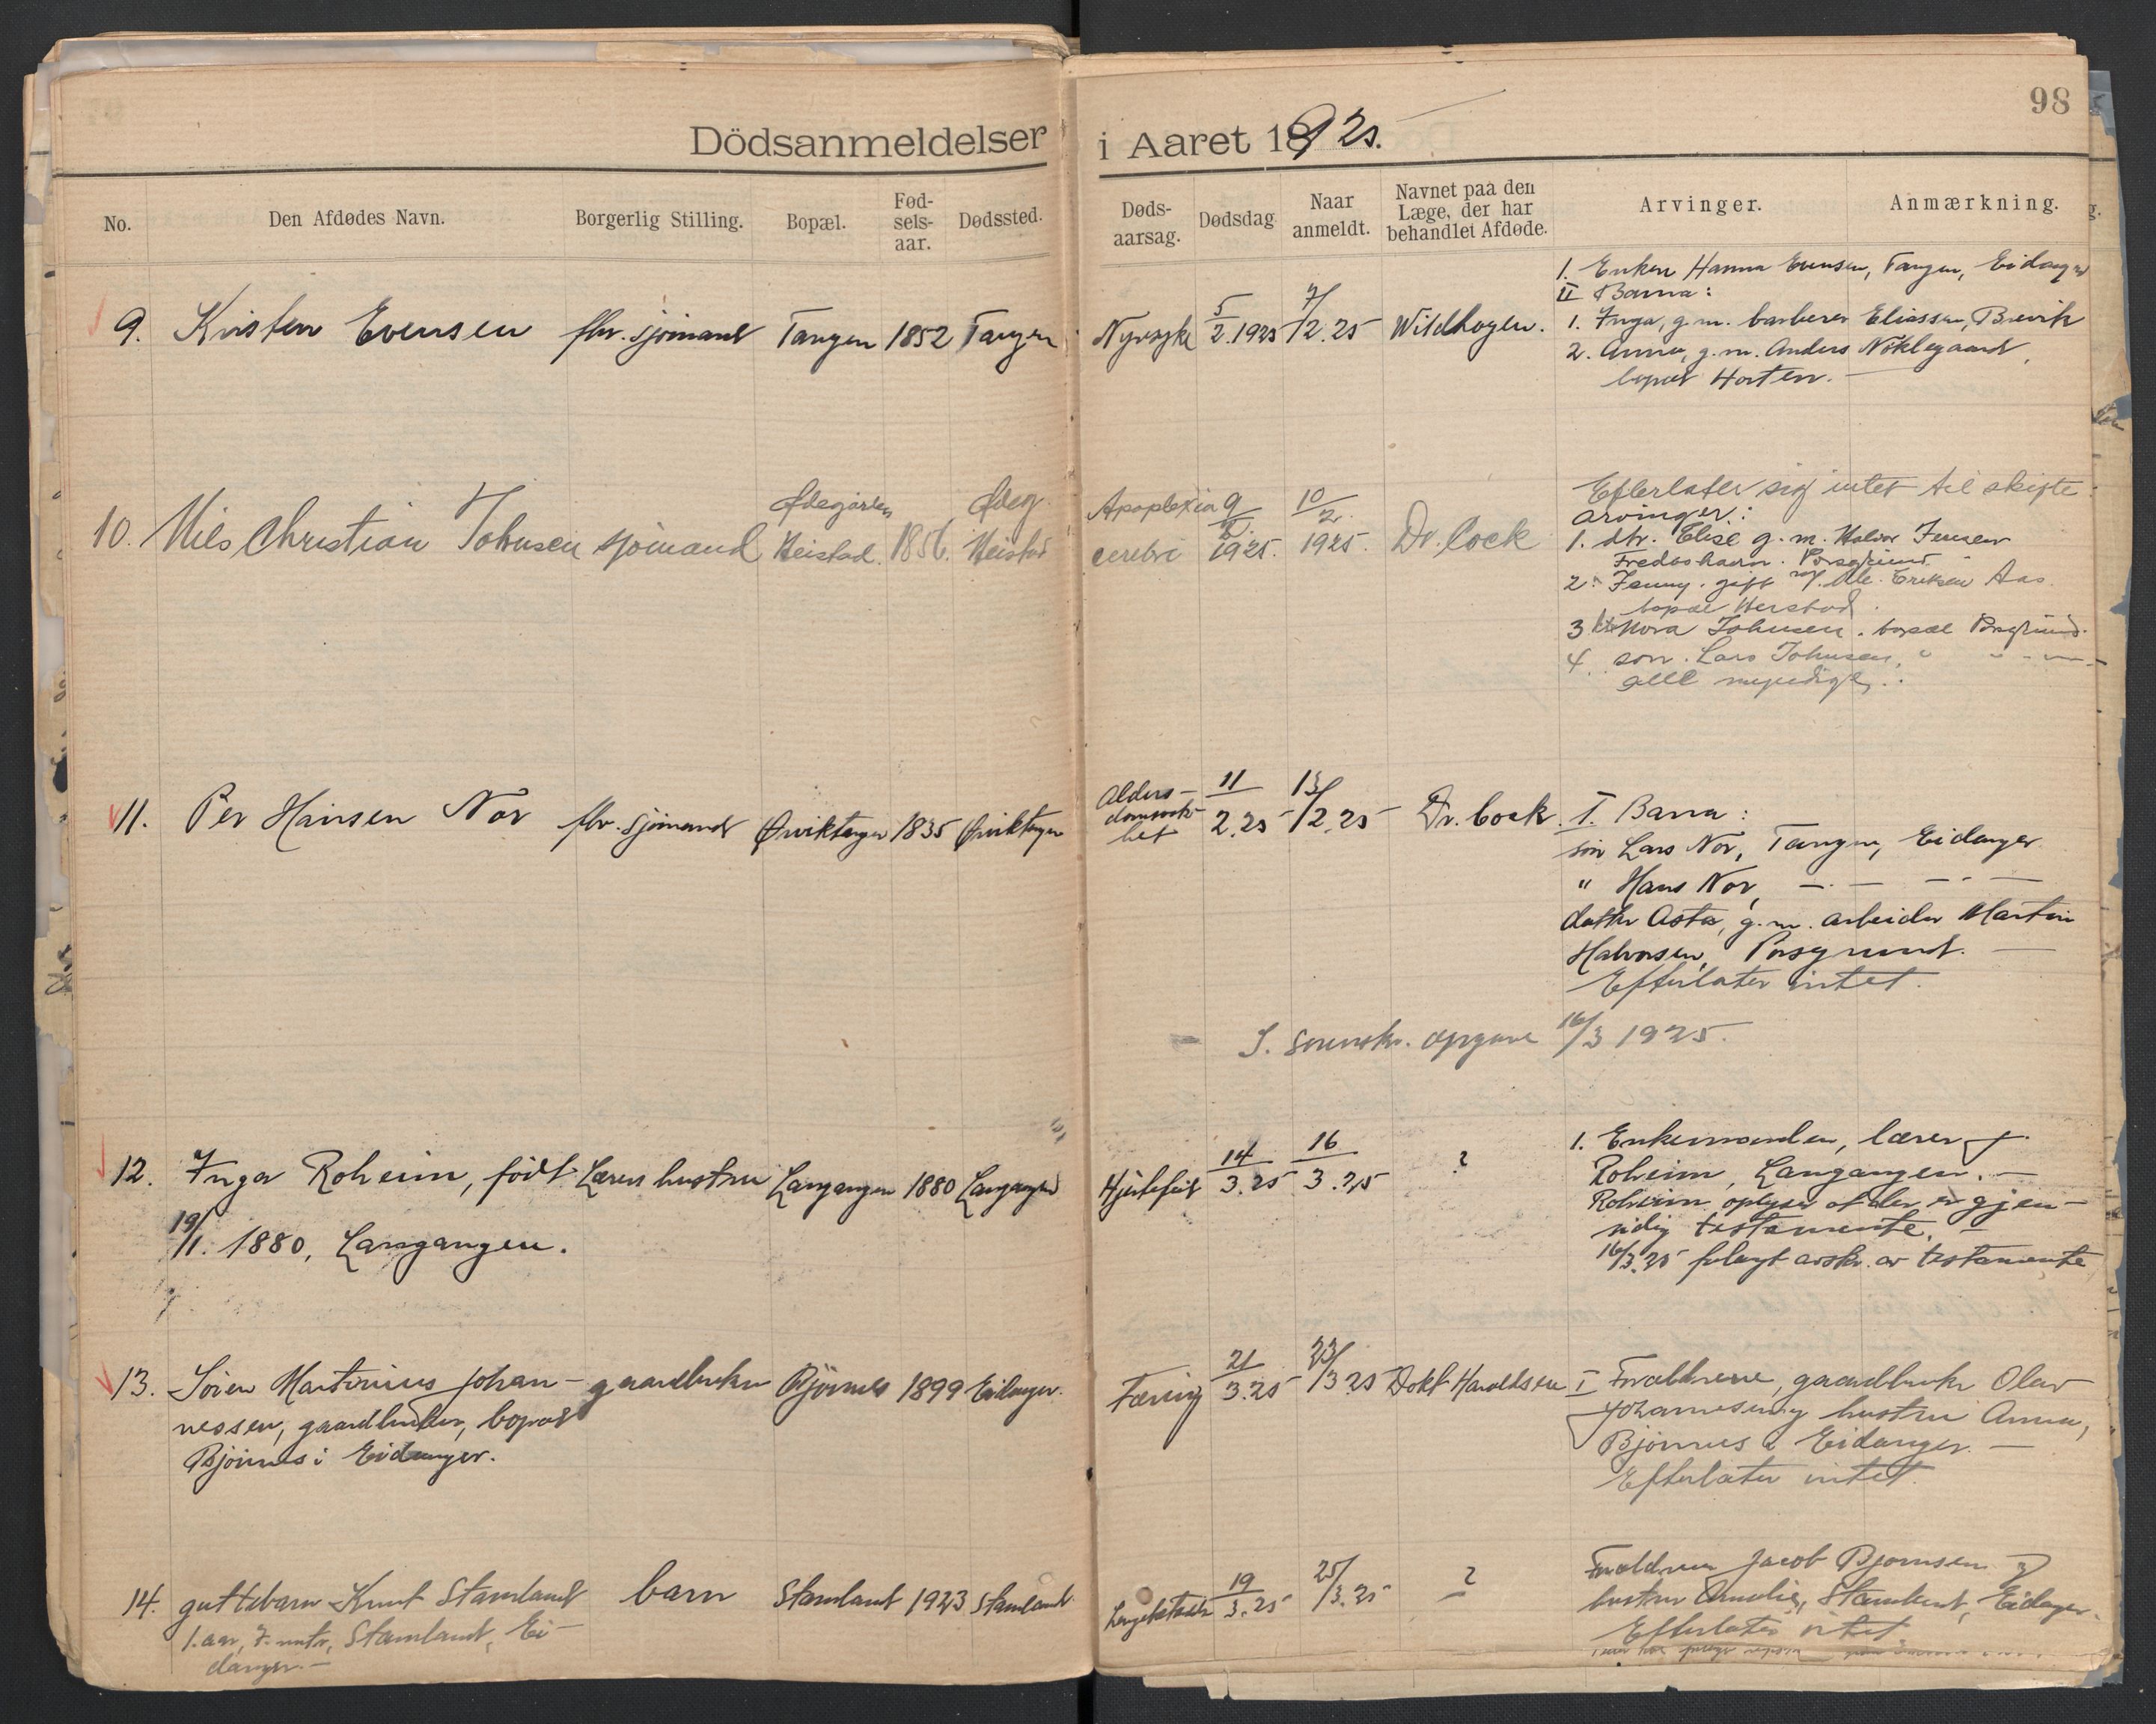 98
Dödsanmeldelser i Aaret 1925.
No. Den Afdødes Navn. Borgerlig Stilling. Bopæl. Fød-sels-aar. Dødssted. Døds-aarsag. Dødsdag Naar anmeldt. Navnet paa den Læge, der har behandlet Afdøde. Arvinger. Anmærkning.
9. Kristen Evensen fhv. sjömand Tangen 1852 Tangen Nyresyke 5/2.1925 7/2.25 Wildhagen.
1. Enken Hanna Evensen, Tangen, Eidanger
II Barna:
1. Inga, g.m. barberer Eliassen, Brevik
2. Anna, g.m. Anders Nöklegaard,
bopæl Horten. —
10. Nils Christian Johnsen sjömand Ødegården Heistad. 1856. Ødeg. Heistad Apoplexia cerebri 9/2. 1925. 10/2. 1925. Dr. Cock
Efterlater sig intet til skifte.
arvinger:
1. dtr. Elise g.m. Halvor Jensen
Fredashavn. Porsgrund
2. Jenny. gift m/ Ole Eriksen Aas.
bopæl Herstad.
3 Nora Johnsen. bopæl Porsgrund.
4. son. Lars Johnsen, " " - —
alle myndige.
11. Per Hansen Nor fhv. sjömand Ørviktangen 1835 Ørviktangen Alders-domssvak-het 11/2.25 13/2.25 Dr. Cock.
I. Barna:
sön Lars Nor, Tangen, Eidanger
" Hans Nor, —.— —.—
datter Asta, g.m. arbeider Martin
Halvorsen, Porsgrund. —
Efterlater intet.
S. sorenskr. opgave 16/3 1925.
12. Inga Roheim, födt Lærers hustru Langangen 1880 Langangen Hjertefeil 14/3.25 16/3.25 ?
19/11. 1880, Langangen.
1. Enkemanden, lærer J.
Roheim, Langangen. —
Roheim oplyser at der er gjen-
sidig testamente. —
16/3.25 frlagt avskr. av testamente
13. Sören Martinius Johan- gaardbruker Björnnes 1899 Eidanger. Tæring 21/3.25 23/3 25 Dokt Haraldsen
nessen, gaardbruker, bopæl
Björnnes i Eidanger.
I Forældrene, gaardbruker Olav
Johannesen og hustru Anna,
Björnnes i Eidanger. —
Efterlater intet.
14. guttebarn Knut Stamland barn Stamland 1923 Stamland 19/3.25 25/3.25 ?
1. aar, 7. mntr, Stamland, Ei-
danger. —
Forældrene Jacob Bjørnsen og
hustru Amalie, Stamland, Eidanger.
Efterlater intet